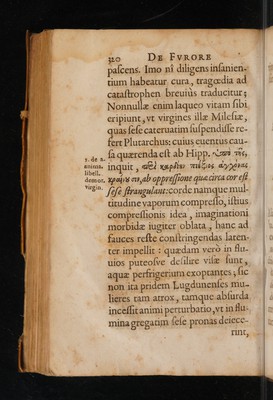 320 DE FVRORE
pascens. Imo nî diligens insanien-
tium habeatur cura, tragœdia ad
catastrophen breuiùs traducitur;
Nonnullæ enim laqueo vitam sibi
eripiunt, vt virgines illæ Milesiæ,
quas sese cateruatim suspendisse re-
fert Plutarchus: cuius euentus cau-
sa quærenda est ab Hipp.
inquit, ab oppressione quæ circa cor est
sese strangulant: corde namque mul-
titudine vaporum compresso, istius
compressionis idea, imaginationi
morbidæ iugiter oblata, hanc ad
fauces restè constringendas laten-
ter impellit: quædam verò in flu-
uios puteosve desilire visæ sunt,
aquæ perfrigerium exoptantes; sic
non ita pridem Lugdunenses mu-
lieres tam atrox, tamque absurda
incessit animi perturbatio, vt in flu-
mina gregatim sese pronas deiece-
rint,
5. de a.
anima.
libell.
demor.
virgin.